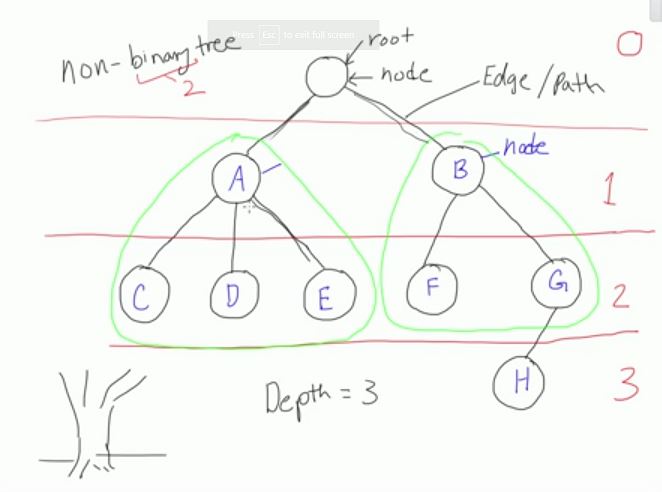 Press Esc to exit full screen
non-binary tree
2
root
node
Edge/Path
0
node
A
B
1
C
D
E
F
G
2
H
Depth = 3
3